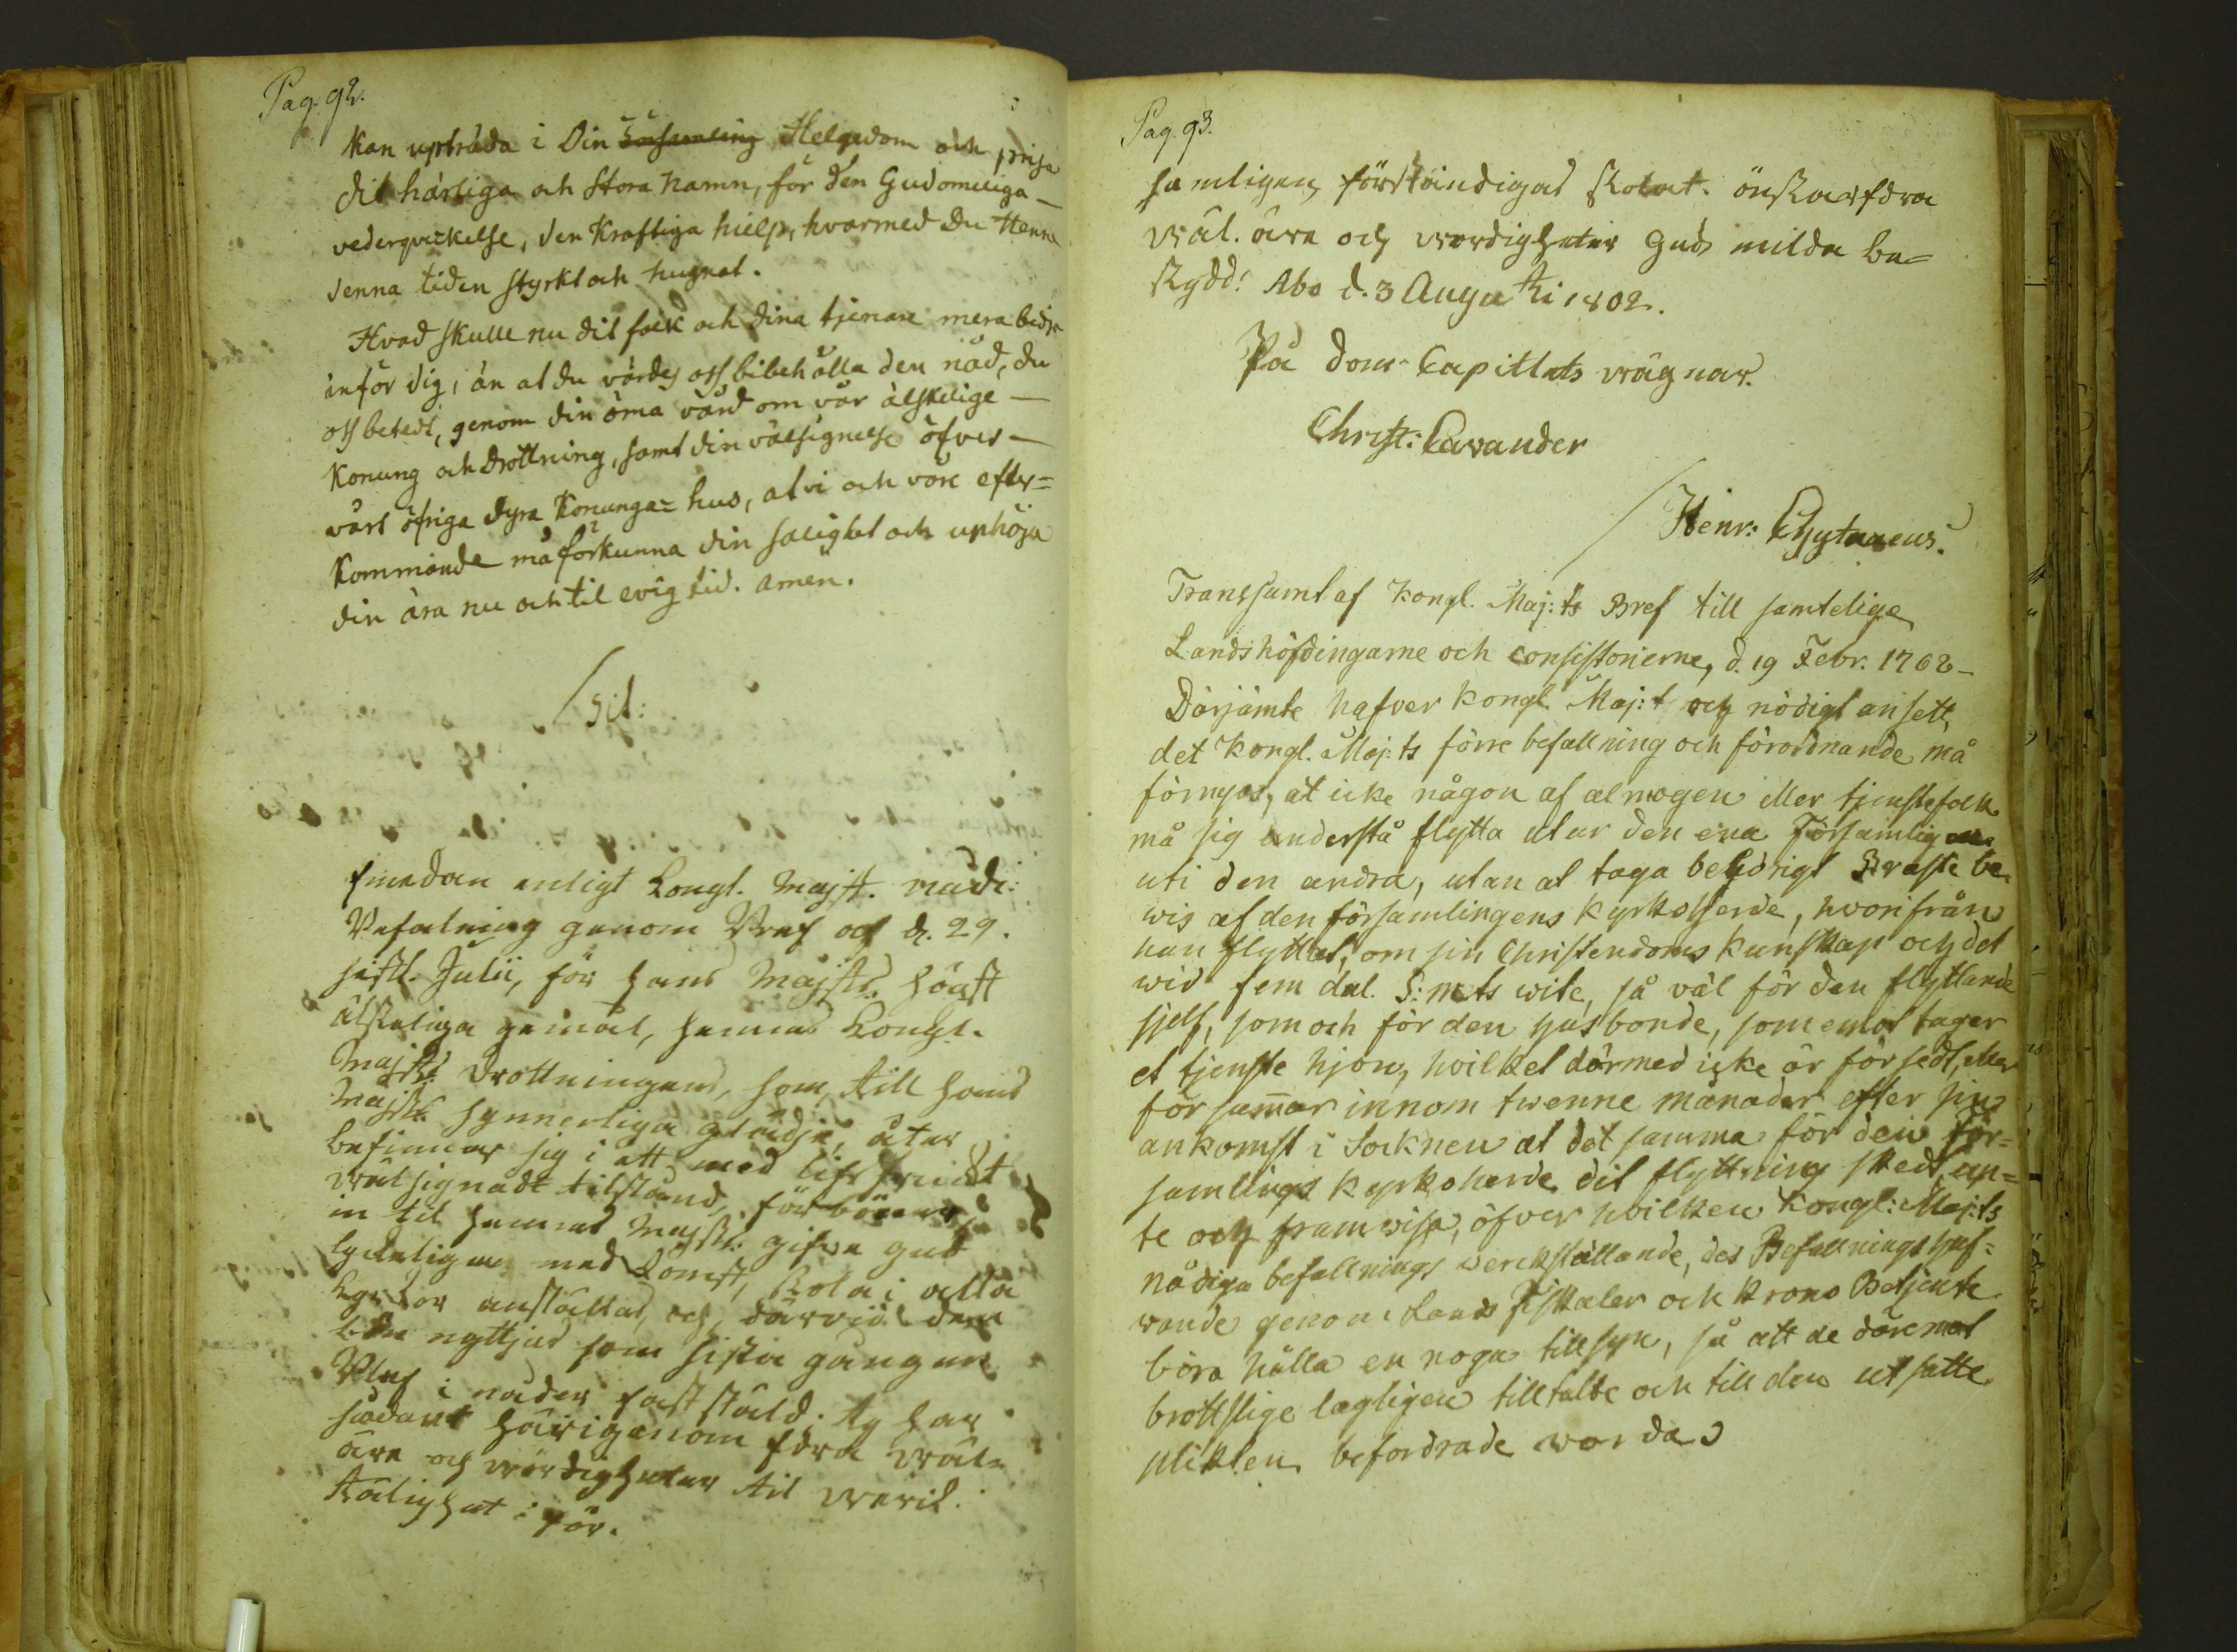 Pag. 92.
Kan upträda i Din Församling Helgedom och prisa
dit härliga och Stora Namn, för den Gudomeliga
vederqvickelse, den Kraftiga hielp, hvarmed Du Henne
denna tiden styrkt och hugnat.
Hvad skulle nu dit folk och dina tjenare mera bedja
inför dig, än at du värdes oss bibehålla den nåd, du
oss betedt, genom din öma vård om vår älskelige
Konung och Drottning, samt din välsignelse öfver
vårt öfriga dyra Konunga=hus, at vi och våre efter=
Kommande må förkunna din salighet och uphöja
din ära nu och til evig tid. Amen.
Sit:
smedan enligt Kongl. Majst. nådi:
Befalning genom Bref af d. 29.
sistl. Julii, för Hans Majsts högst
älskeliga gemål, Hennes Kongl.
Majsts Drottningens, som, till Hans
Majsts synnerliga glädje, åter
befinner sig i ett med lifsfrukt
wälsignadt tilstånd, förböner,
in til Hennes Majsts gifve gud
lyckeligen nedkomst, skola i alla
Kyrkor anställas, och därvid den
bön nyttjas som sista gången
blef i nåder fastställd; Ty har
sådant härigenom Edra Wäl=
äre och wördigheter til werk:
stälighet i för.
Pag. 93.
samligen förständigas skolat. önskar Edra
Wäl. äre och wördigheter Guds milda be=
skydd! Åbo d. 3 Augusti 1802.
På Dom-Capitlets wägnar.
Christ: Cavander
Henr: Chytraeus.
Transsumt af Kongl. Maj:ts Bref till samtelige
Landshöfdingarne och Consistorierne, d. 19 Febr. 1768
Därjämte hafver Kongl. Maj:t och nödigt ansett,
det Kongl. Maj:ts förre befallning och förordnande må
förnyas, at icke någon af almogen eller tjenstefolk
må sig understå flytta utur den ena Församligen
uti den andra, utan at taga behörigt Präste be
wis af den församlingens Kyrkoherde, hvorifrån
han flyttat, om sin Christendoms kunskap och det
wid fem dal. S:mts wite, så väl för den flyttande
sjelf, som och för den husbonde, som emot tager
et tjenste hjon, hvilket därmed icke är försedt, eller
försummar innom twenne månader efter sin
ankomst i Socknen at det samma för den för=
samlings Kyrkoherde dit flyttning skedt, up=
te och framwisa, öfver hvilken Kongl: Maj:ts
nådiga befallnings werckställande, des Befallningshaf=
wande genom Lands Fiskaler och Krono Betjente
böra hålla en noga tillsyn, så att de däremot
brottslige lagligen tilltalte och till den utsatte
plikten befordrade warda